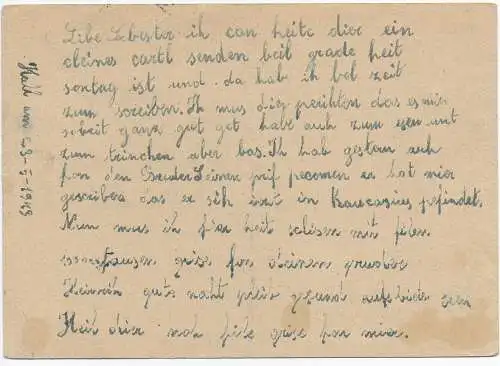 Libe Schester ich can heite dier ein
cleines cartl senden beil grade heit
sontag ist und da hab ih bol zeit
zum sreiben. Ih mus dier perichten das es mir
so beit ganz gut get habe auch zum esen unt
zum trinchen aber bas. Ih hab gestern auh
fon den Bruder einen prif pecomen er hat mier
gescriben das er sih izet in Kaucasius pefindet.
Nun mus ih fier heit schlisen mit filen
grise fon deinen pruder
Heinrih guts naht pleib gesund auf bider sen
Heil dier noh file grise fon mier.
Hall am 28-5-1943